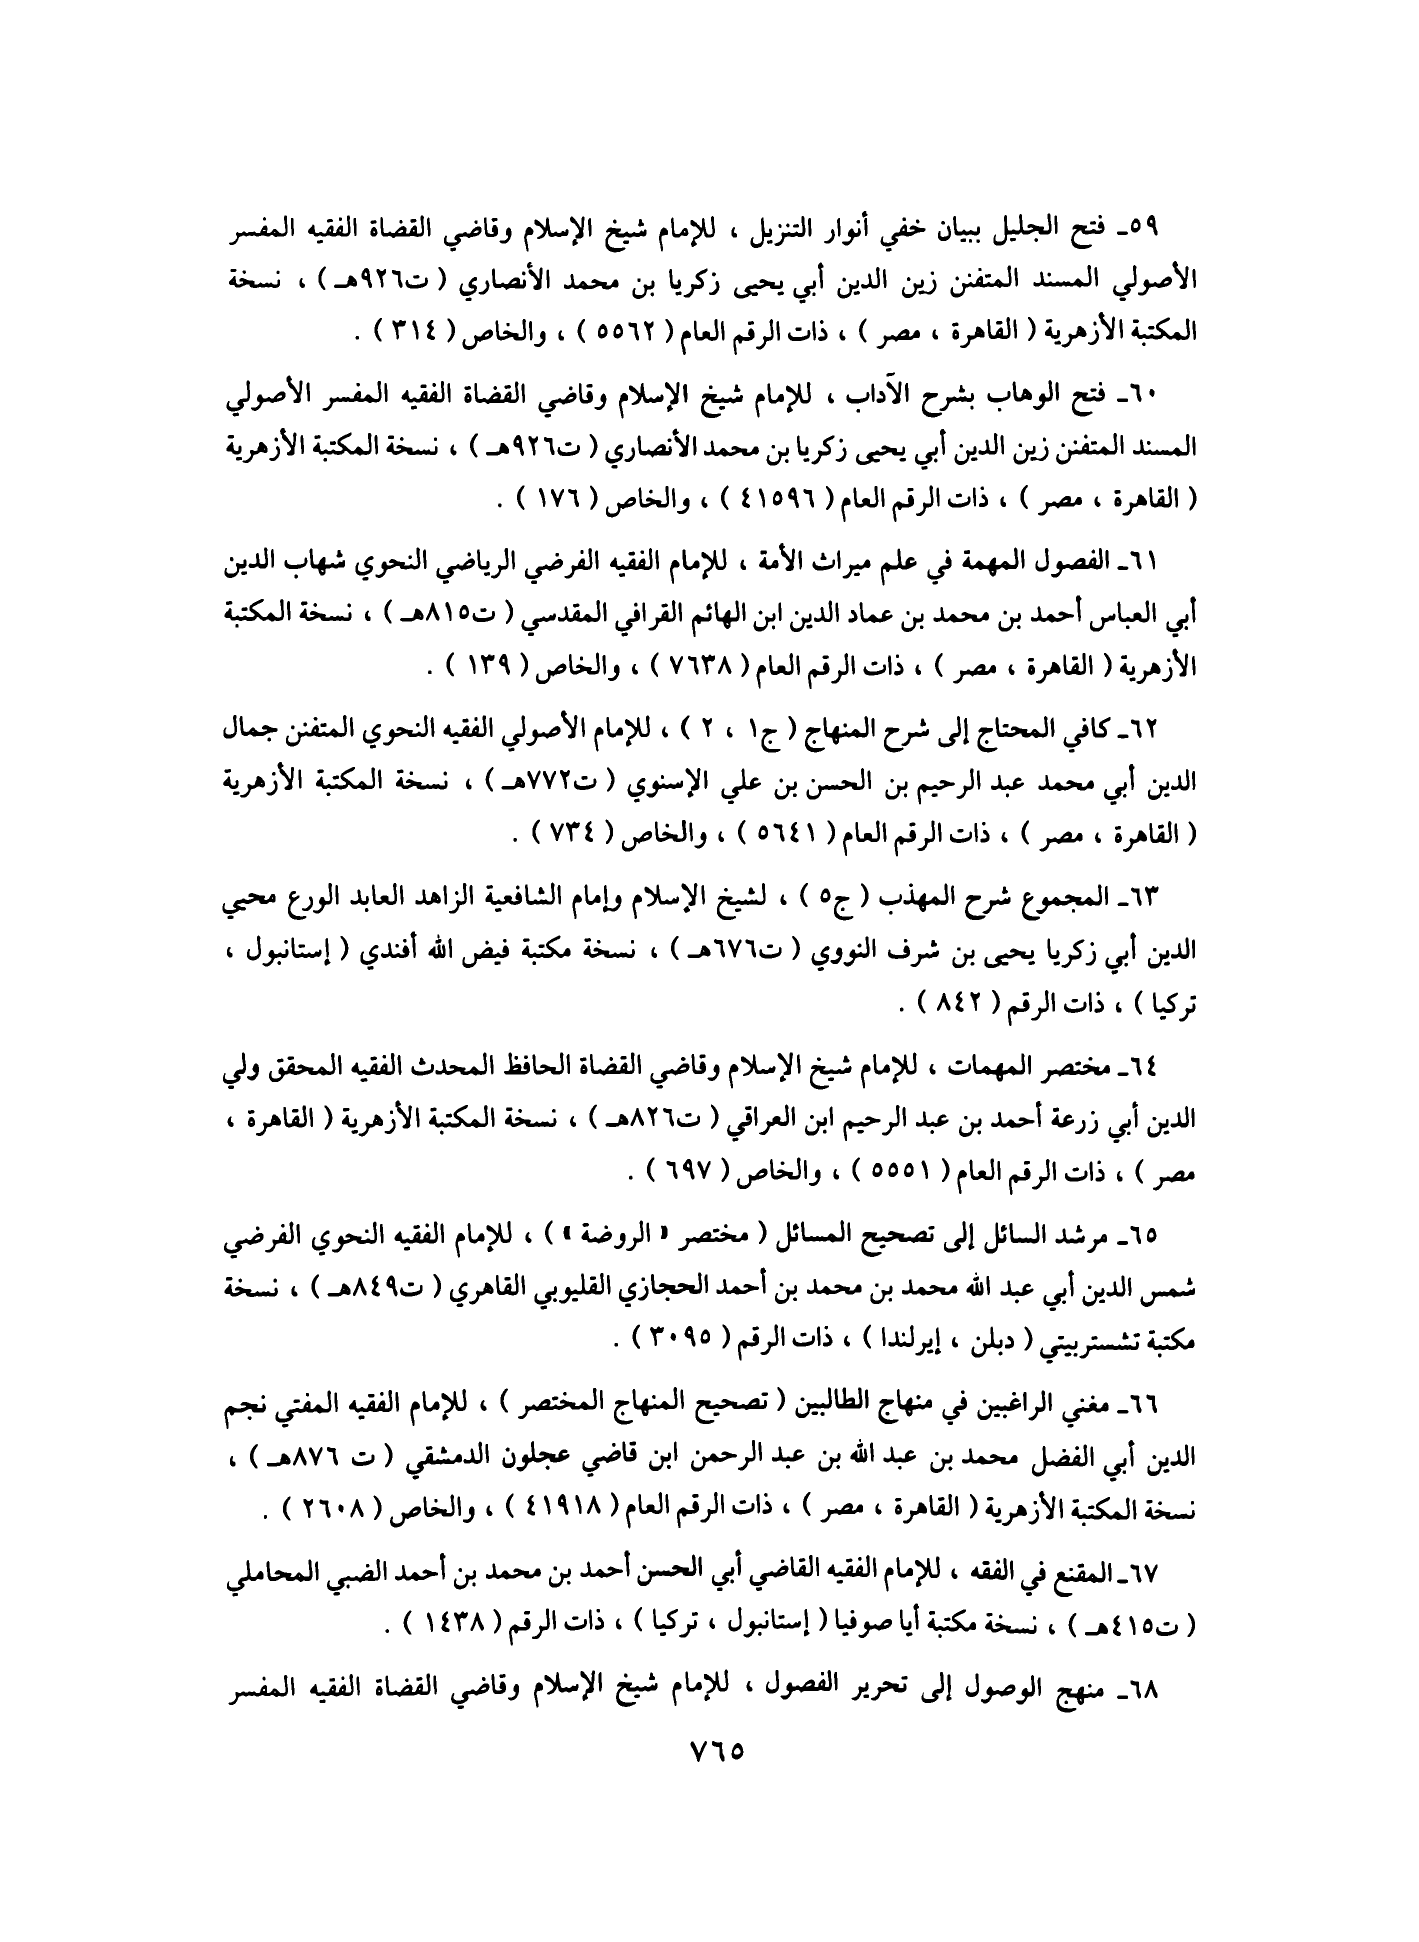 ٥٩ـ فتح الجليل ببيان خفي أنوار التنزيل ، للإمام شيخ الإسلام وقاضي القضاة الفقيه المفسر
الأصولي المسند المتفنن زين الدين أبي يحيى زكريا بن محمد الأنصاري ( ت٩٢٦هـ ) ، نسخة
المكتبة الأزهرية ( القاهرة ، مصر ) ، ذات الرقم العام ( ٥٥٦٢ ) ، والخاص ( ٣١٤ ) .
٦٠ـ فتح الوهاب بشرح الآداب ، للإمام شيخ الإسلام وقاضي القضاة الفقيه المفسر الأصولي
المسند المتفنن زين الدين أبي يحيى زكريا بن محمد الأنصاري ( ت٩٢٦هـ ) ، نسخة المكتبة الأزهرية
( القاهرة ، مصر ) ، ذات الرقم العام ( ٤١٥٩٦ ) ، والخاص ( ١٧٦ ) .
٦١ـ الفصول المهمة في علم ميراث الأمة ، للإمام الفقيه الفرضي الرياضي النحوي شهاب الدين
أبي العباس أحمد بن محمد بن عماد الدين ابن الهائم القرافي المقدسي ( ت٨١٥هـ ) ، نسخة المكتبة
الأزهرية ( القاهرة ، مصر ) ، ذات الرقم العام ( ٧٦٣٨ ) ، والخاص ( ١٣٩ ) .
٦٢ـ كافي المحتاج إلى شرح المنهاج ( ج١ ، ٢ ) ، للإمام الأصولي الفقيه النحوي المتفنن جمال
الدين أبي محمد عبد الرحيم بن الحسن بن علي الإسنوي ( ت٧٧٢هـ ) ، نسخة المكتبة الأزهرية
( القاهرة ، مصر ) ، ذات الرقم العام ( ٥٦٤١ ) ، والخاص ( ٧٣٤ ) .
٦٣ـ المجموع شرح المهذب ( ج٥ ) ، لشيخ الإسلام وإمام الشافعية الزاهد العابد الورع محيي
الدين أبي زكريا يحيى بن شرف النووي ( ت٦٧٦هـ ) ، نسخة مكتبة فيض الله أفندي ( إستانبول ،
تركيا ) ، ذات الرقم ( ٨٤٢ ) .
٦٤ـ مختصر المهمات ، للإمام شيخ الإسلام وقاضي القضاة الحافظ المحدث الفقيه المحقق ولي
الدين أبي زرعة أحمد بن عبد الرحيم ابن العراقي ( ت٨٢٦هـ ) ، نسخة المكتبة الأزهرية ( القاهرة ،
مصر ) ، ذات الرقم العام ( ٥٥٥١ ) ، والخاص ( ٦٩٧ ) .
٦٥ـ مرشد السائل إلى تصحيح المسائل ( مختصر « الروضة » ) ، للإمام الفقيه النحوي الفرضي
شمس الدين أبي عبد الله محمد بن محمد بن أحمد الحجازي القليوبي القاهري ( ت٨٤٩هـ ) ، نسخة
مكتبة تشستربيتي ( دبلن ، إيرلندا ) ، ذات الرقم ( ٣٠٩٥ ) .
٦٦ـ مغني الراغبين في منهاج الطالبين ( تصحيح المنهاج المختصر ) ، للإمام الفقيه المفتي نجم
الدين أبي الفضل محمد بن عبد الله بن عبد الرحمن ابن قاضي عجلون الدمشقي ( ت ٨٧٦هـ ) ،
نسخة المكتبة الأزهرية ( القاهرة ، مصر ) ، ذات الرقم العام ( ٤١٩١٨ ) ، والخاص ( ٢٦٠٨ ) .
٦٧ـ المقنع في الفقه ، للإمام الفقيه القاضي أبي الحسن أحمد بن محمد بن أحمد الضبي المحاملي
( ت٤١٥هـ ) ، نسخة مكتبة أيا صوفيا ( إستانبول ، تركيا ) ، ذات الرقم ( ١٤٣٨ ) .
٦٨ـ منهج الوصول إلى تحرير الفصول ، للإمام شيخ الإسلام وقاضي القضاة الفقيه المفسر
٧٦٥